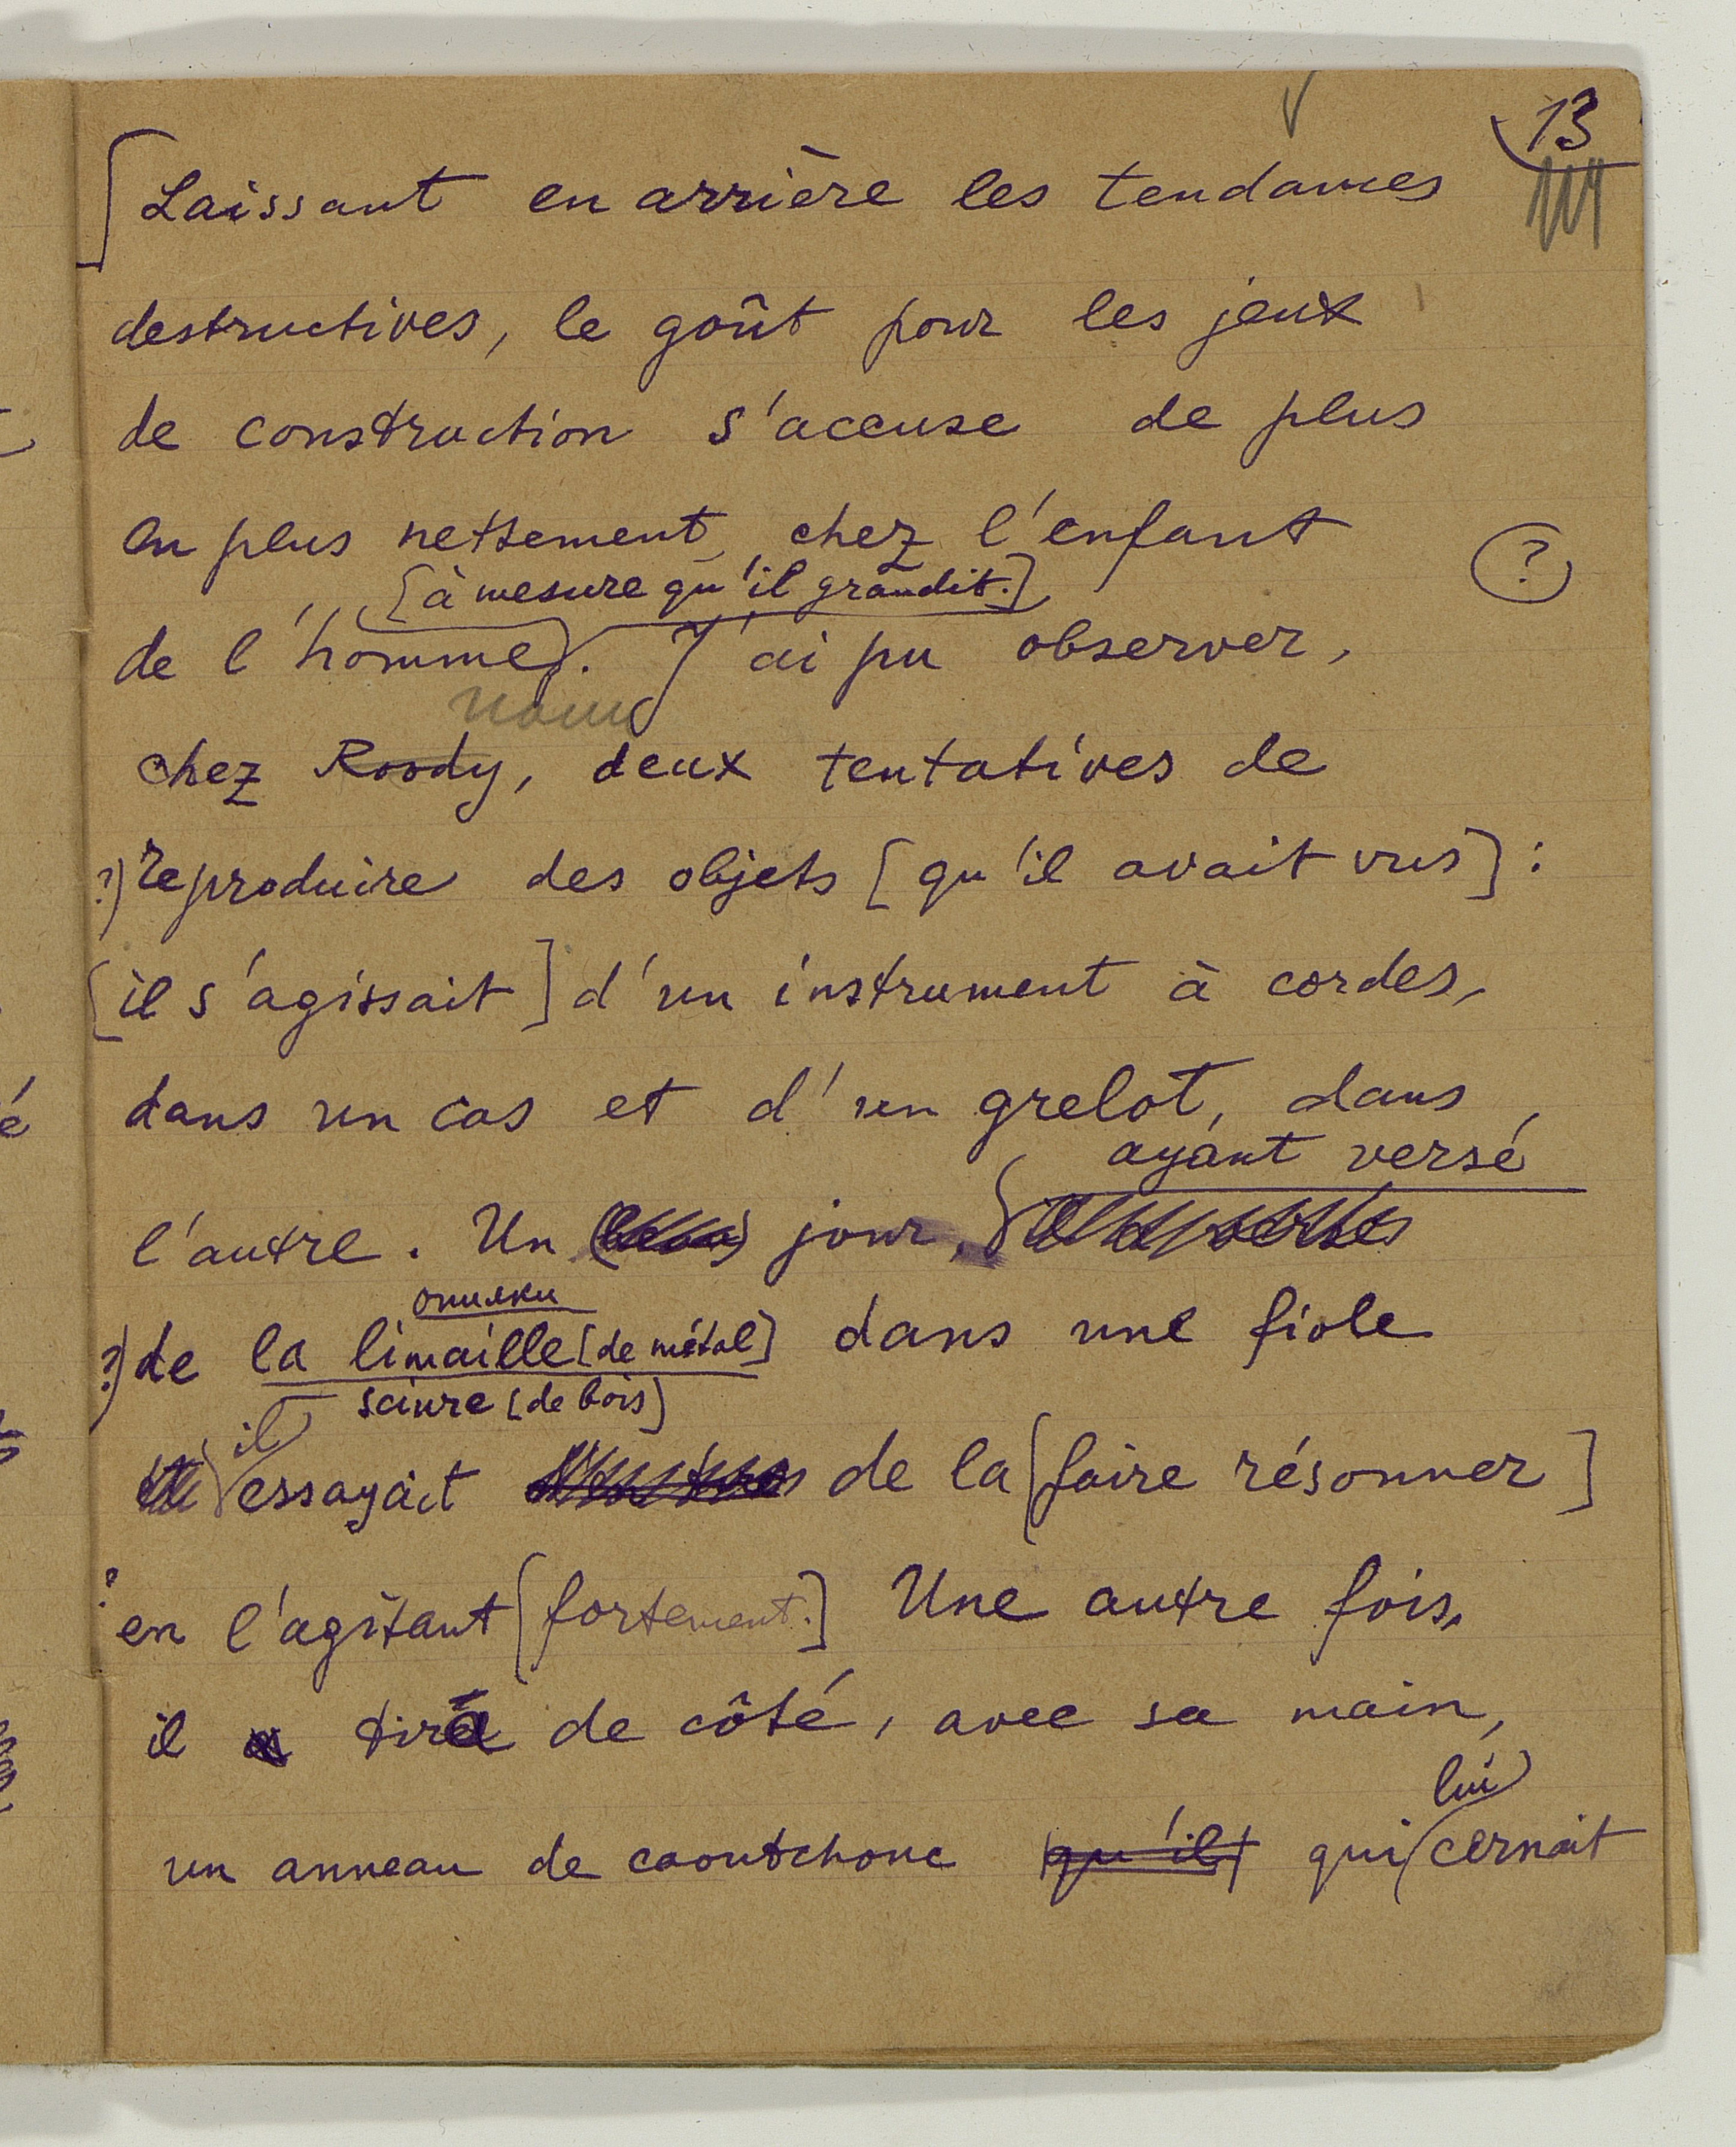 13
Laissant en arrière les tendances
destructives, le goût pour les jeux
de construction s'accuse de plus
en plus nettement, chez l'enfant
[à mesure qu'il grandit.] (?)
de l'homme). J'ai pu observer,
chez Roody, deux tentatives de
?) reproduire des objets [qu'il avait vus] :
[il s'agissait] d'un instrument à cordes,
dans un cas et d'un grelot, dans
ayant versé
l'autre. Un jour,
опилки
?) de la limaille [de métal] dans une fiole
sciure [de bois]
il
essayait de la [faire résonner]
? en l'agitant [fortement.] Une autre fois,
il tira de côté, avec sa main,
lui
un anneau de caoutchouc qu'il qui cernait